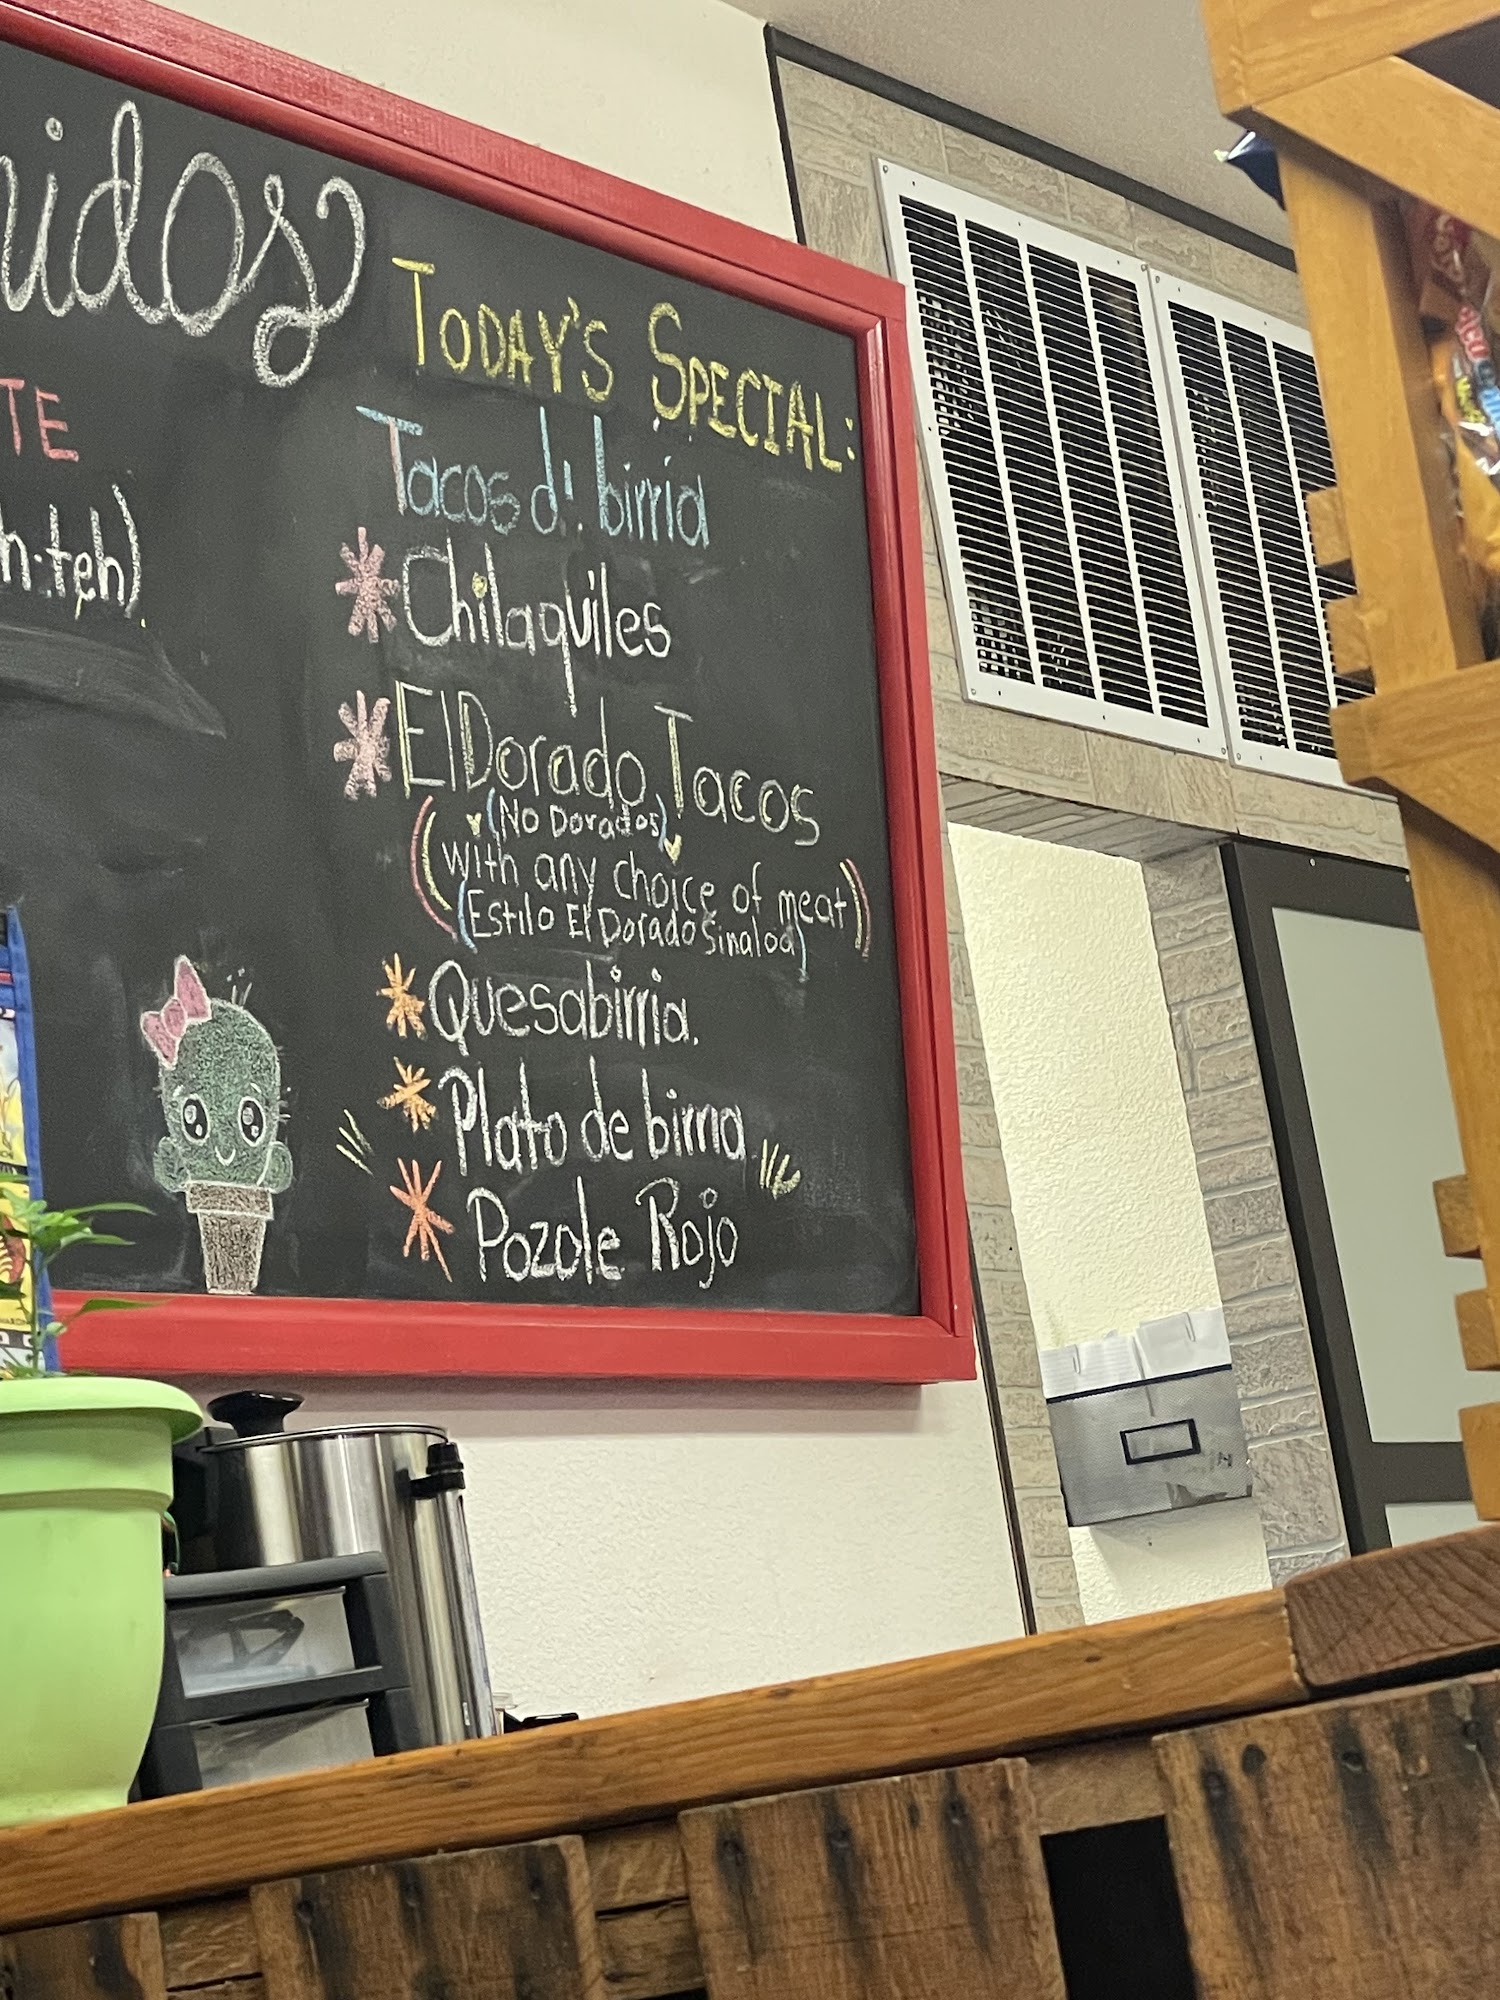 Today's Special:
Tacos d! birria
Chilaquiles
El Dorado Tacos
(No Dorados)
(with any choice of meat)
(Estilo El Dorado Sinaloa)
Quesabirria.
Plato de birria
Pozole Rojo